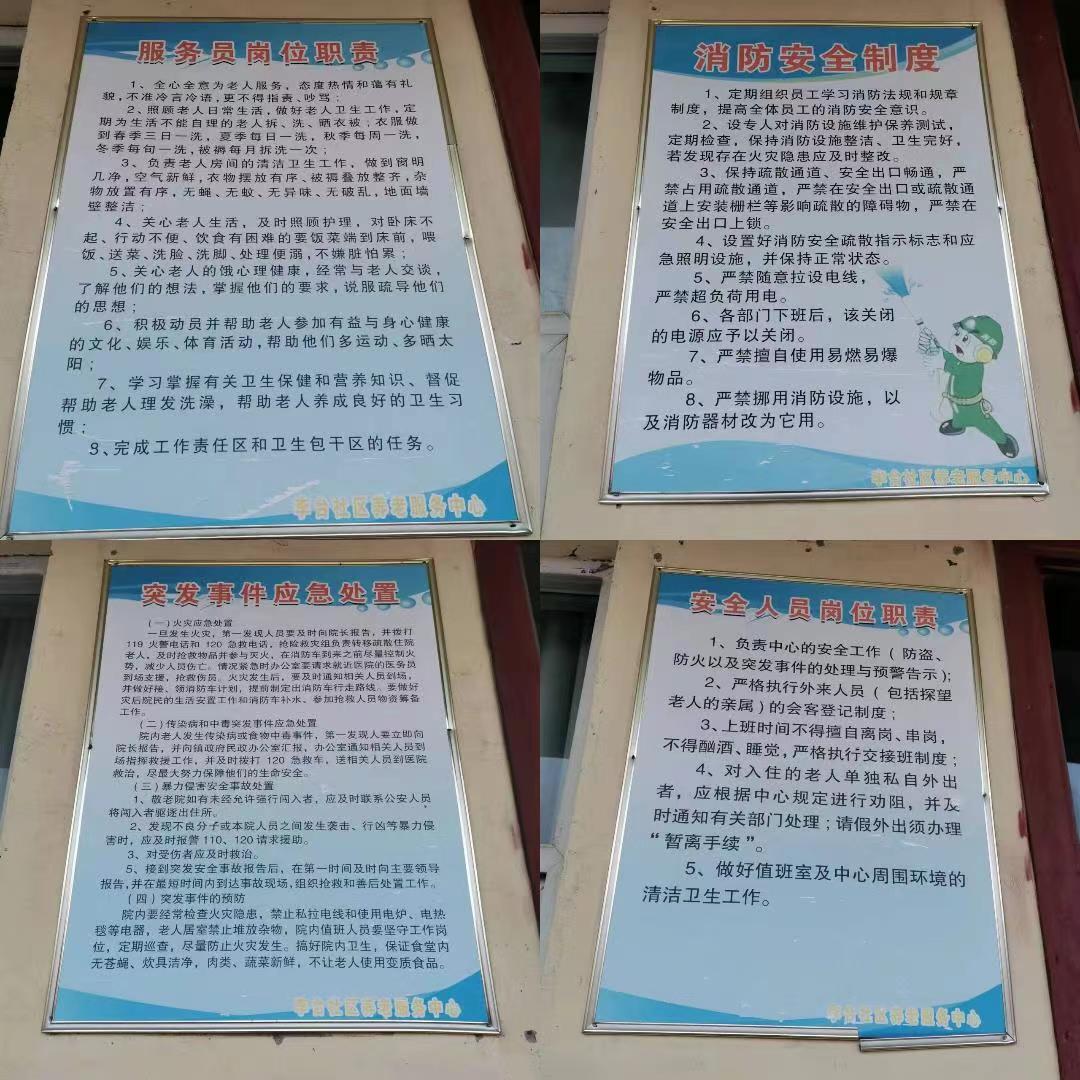 服务员岗位职责
1、全心全意为老人服务，态度热情和蔼有礼
貌，不准冷言冷语，更不得指责、吵骂；
2、照顾老人日常生活，做好老人卫生工作，定
期为生活不能自理的老人拆、洗、晒衣被；衣服做
到春季三日一洗，夏季每日一洗，秋季每周一洗，
冬季每旬一洗，被褥每月拆洗一次；
3、负责老人房间的清洁卫生工作，做到窗明
几净，空气新鲜，衣物摆放有序、被褥叠放整齐，杂
物放置有序，无蝇、无蚊、无异味、无破乱，地面墙
壁整洁；
4、关心老人生活，及时照顾护理，对卧床不
起、行动不便、饮食有困难的要饭菜端到床前，喂
饭、送菜、洗脸、洗脚、处理便溺，不嫌脏怕累；
5、关心老人的饿心理健康，经常与老人交谈，
了解他们的想法，掌握他们的要求，说服疏导他们
的思想；
6、积极动员并帮助老人参加有益与身心健康
的文化、娱乐、体育活动，帮助他们多运动、多晒太
阳；
7、学习掌握有关卫生保健和营养知识、督促
帮助老人理发洗澡，帮助老人养成良好的卫生习
惯；
9、完成工作责任区和卫生包干区的任务。
李台社区养老服务中心
消防安全制度
1、定期组织员工学习消防法规和规章
制度，提高全体员工的消防安全意识。
2、设专人对消防设施维护保养测试，
定期检查，保持消防设施整洁、卫生完好，
若发现存在火灾隐患应及时整改。
3、保持疏散通道、安全出口畅通，严
禁占用疏散通道，严禁在安全出口或疏散通
道上安装栅栏等影响疏散的障碍物，严禁在
安全出口上锁。
4、设置好消防安全疏散指示标志和应
急照明设施，并保持正常状态。
5、严禁随意拉设电线，
严禁超负荷用电。
6、各部门下班后，该关闭
的电源应予以关闭。
7、严禁擅自使用易燃易爆
物品。
8、严禁挪用消防设施，以
及消防器材改为它用。
李台社区养老服务中心
突发事件应急处置
(一)火灾应急处置
一旦发生火灾，第一发现人员要及时向院长报告，并拨打
119 火警电话和 120 急救电话，抢险救灾组负责转移疏散住院
老人，及时抢救物品并参与灭火，在消防车到来之前尽量控制火
势，减少人员伤亡。情况紧急时办公室要请求就近医院的医务员
到场支援，抢救伤员。火灾发生后，要及时通知相关人员到场，
并做好接、领消防车计划，提前制定出消防车行走路线。要做好
灾后院民的生活安置工作和消防车补水、参加抢救人员物资筹备
工作。
(二)传染病和中毒突发事件应急处置
院内老人发生传染病或食物中毒事件，第一发现人要立即向
院长报告，并向镇政府民政办公室汇报，办公室通知相关人员到
场指挥救援工作，并及时拨打 120 急救车，送相关人员到医院
救治，尽最大努力保障他们的生命安全。
(三)暴力侵害安全事故处置
1、敬老院如有未经允许强行闯入者，应及时联系公安人员
将闯入者驱逐出住所。
2、发现不良分子或本院人员之间发生袭击、行凶等暴力侵
害时，应及时报警 110、120 请求援助。
3、对受伤者应及时救治。
5、接到突发安全事故报告后，在第一时间及时向主要领导
报告，并在最短时间内到达事故现场，组织抢救和善后处置工作。
(四)突发事件的预防
院内要经常检查火灾隐患，禁止私拉电线和使用电炉、电热
毯等电器，老人居室禁止堆放杂物，院内值班人员要坚守工作岗
位，定期巡查，尽量防止火灾发生。搞好院内卫生，保证食堂内
无苍蝇、炊具洁净，肉类、蔬菜新鲜，不让老人使用变质食品。
李台社区养老服务中心
安全人员岗位职责
1、负责中心的安全工作(防盗、
防火以及突发事件的处理与预警告示)；
2、严格执行外来人员(包括探望
老人的亲属)的会客登记制度；
3、上班时间不得擅自离岗、串岗，
不得酗酒、睡觉，严格执行交接班制度；
4、对入住的老人单独私自外出
者，应根据中心规定进行劝阻，并及
时通知有关部门处理；请假外出须办理
“暂离手续”。
5、做好值班室及中心周围环境的
清洁卫生工作。
李台社区养老服务中心